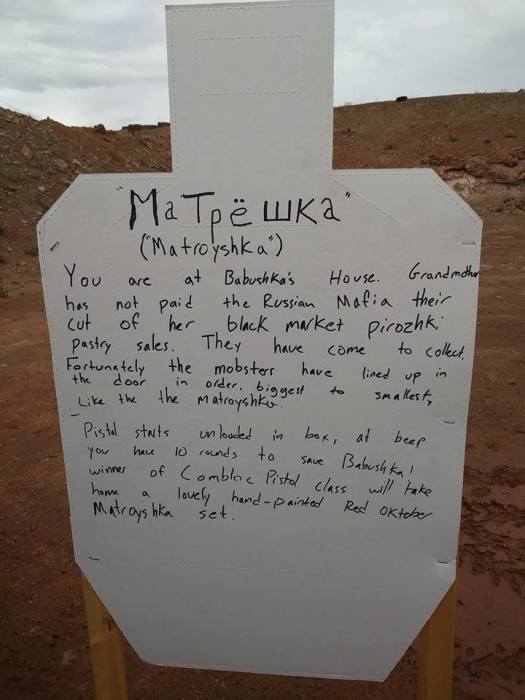 "МаТрёшка"
("Matroyshka")
You are at Babushka's House. Grandmother
has not paid the Russian Mafia their
cut of her black market pirozhki
pastry sales. They have come to collect.
Fortunately the mobsters have lined up in
the door in order, biggest to smallest,
Like the the Matroyshka.
Pistol starts unloaded in box, at beep
you have 10 rounds to save Babushka!
winner of Combloc Pistol class will take
home a lovely hand-painted Red Oktober
Matroyshka set.